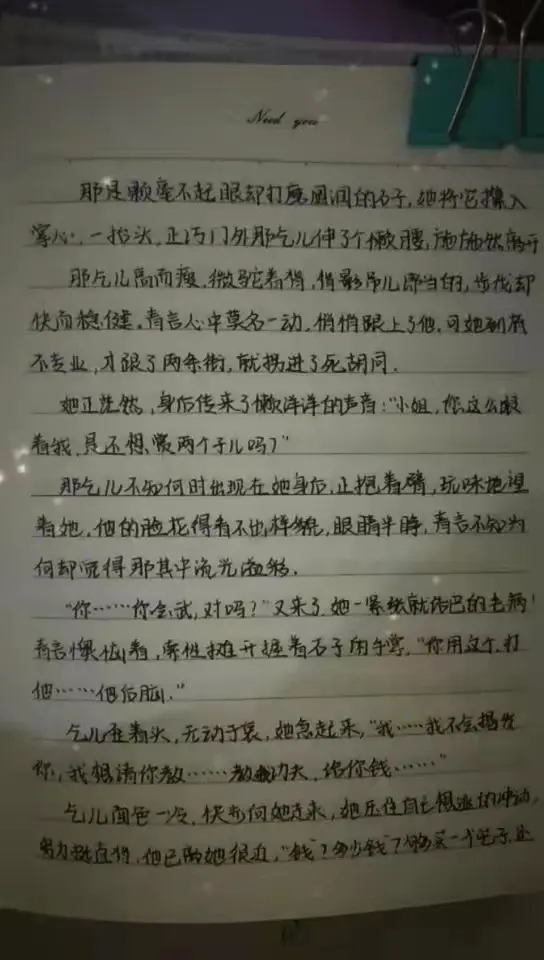 Need you
那是颗毫不起眼却打磨圆润的石子，她将它攥入
掌心，一抬头，正巧门外那乞儿伸了个懒腰，施施然离开
那乞儿高而瘦，微驼着背，背影吊儿郎当的，步伐却
快而稳健。青言心中莫名一动，悄悄跟上了他，可她到底
不专业，才跟了两条街，就拐进了死胡同。
她正茫然，身后传来了懒洋洋的声音：“小姐，你这么跟
着我，是还想赏两个子儿吗？”
那乞儿不知何时出现在她身后，正抱着臂，玩味地望
着她，他的脸花得看不出样貌，眼睛半睁，青言不知为
何却觉得那其中流光溢彩。
“你……你会武，对吗？”又来了，她一紧张就结巴的毛病
青言懊恼着，索性摊开握着石子的手掌，“你用这个，打
他……他后脑。”
乞儿歪着头，无动于衷，她急起来，“我……我不会揭发
你，我想请你教……教我功夫，给你钱……”
乞儿面色一冷，快步向她走来，她压住自己想逃的冲动，
努力挺直背，他已离她很近，“钱？多少钱？够买一个宅子